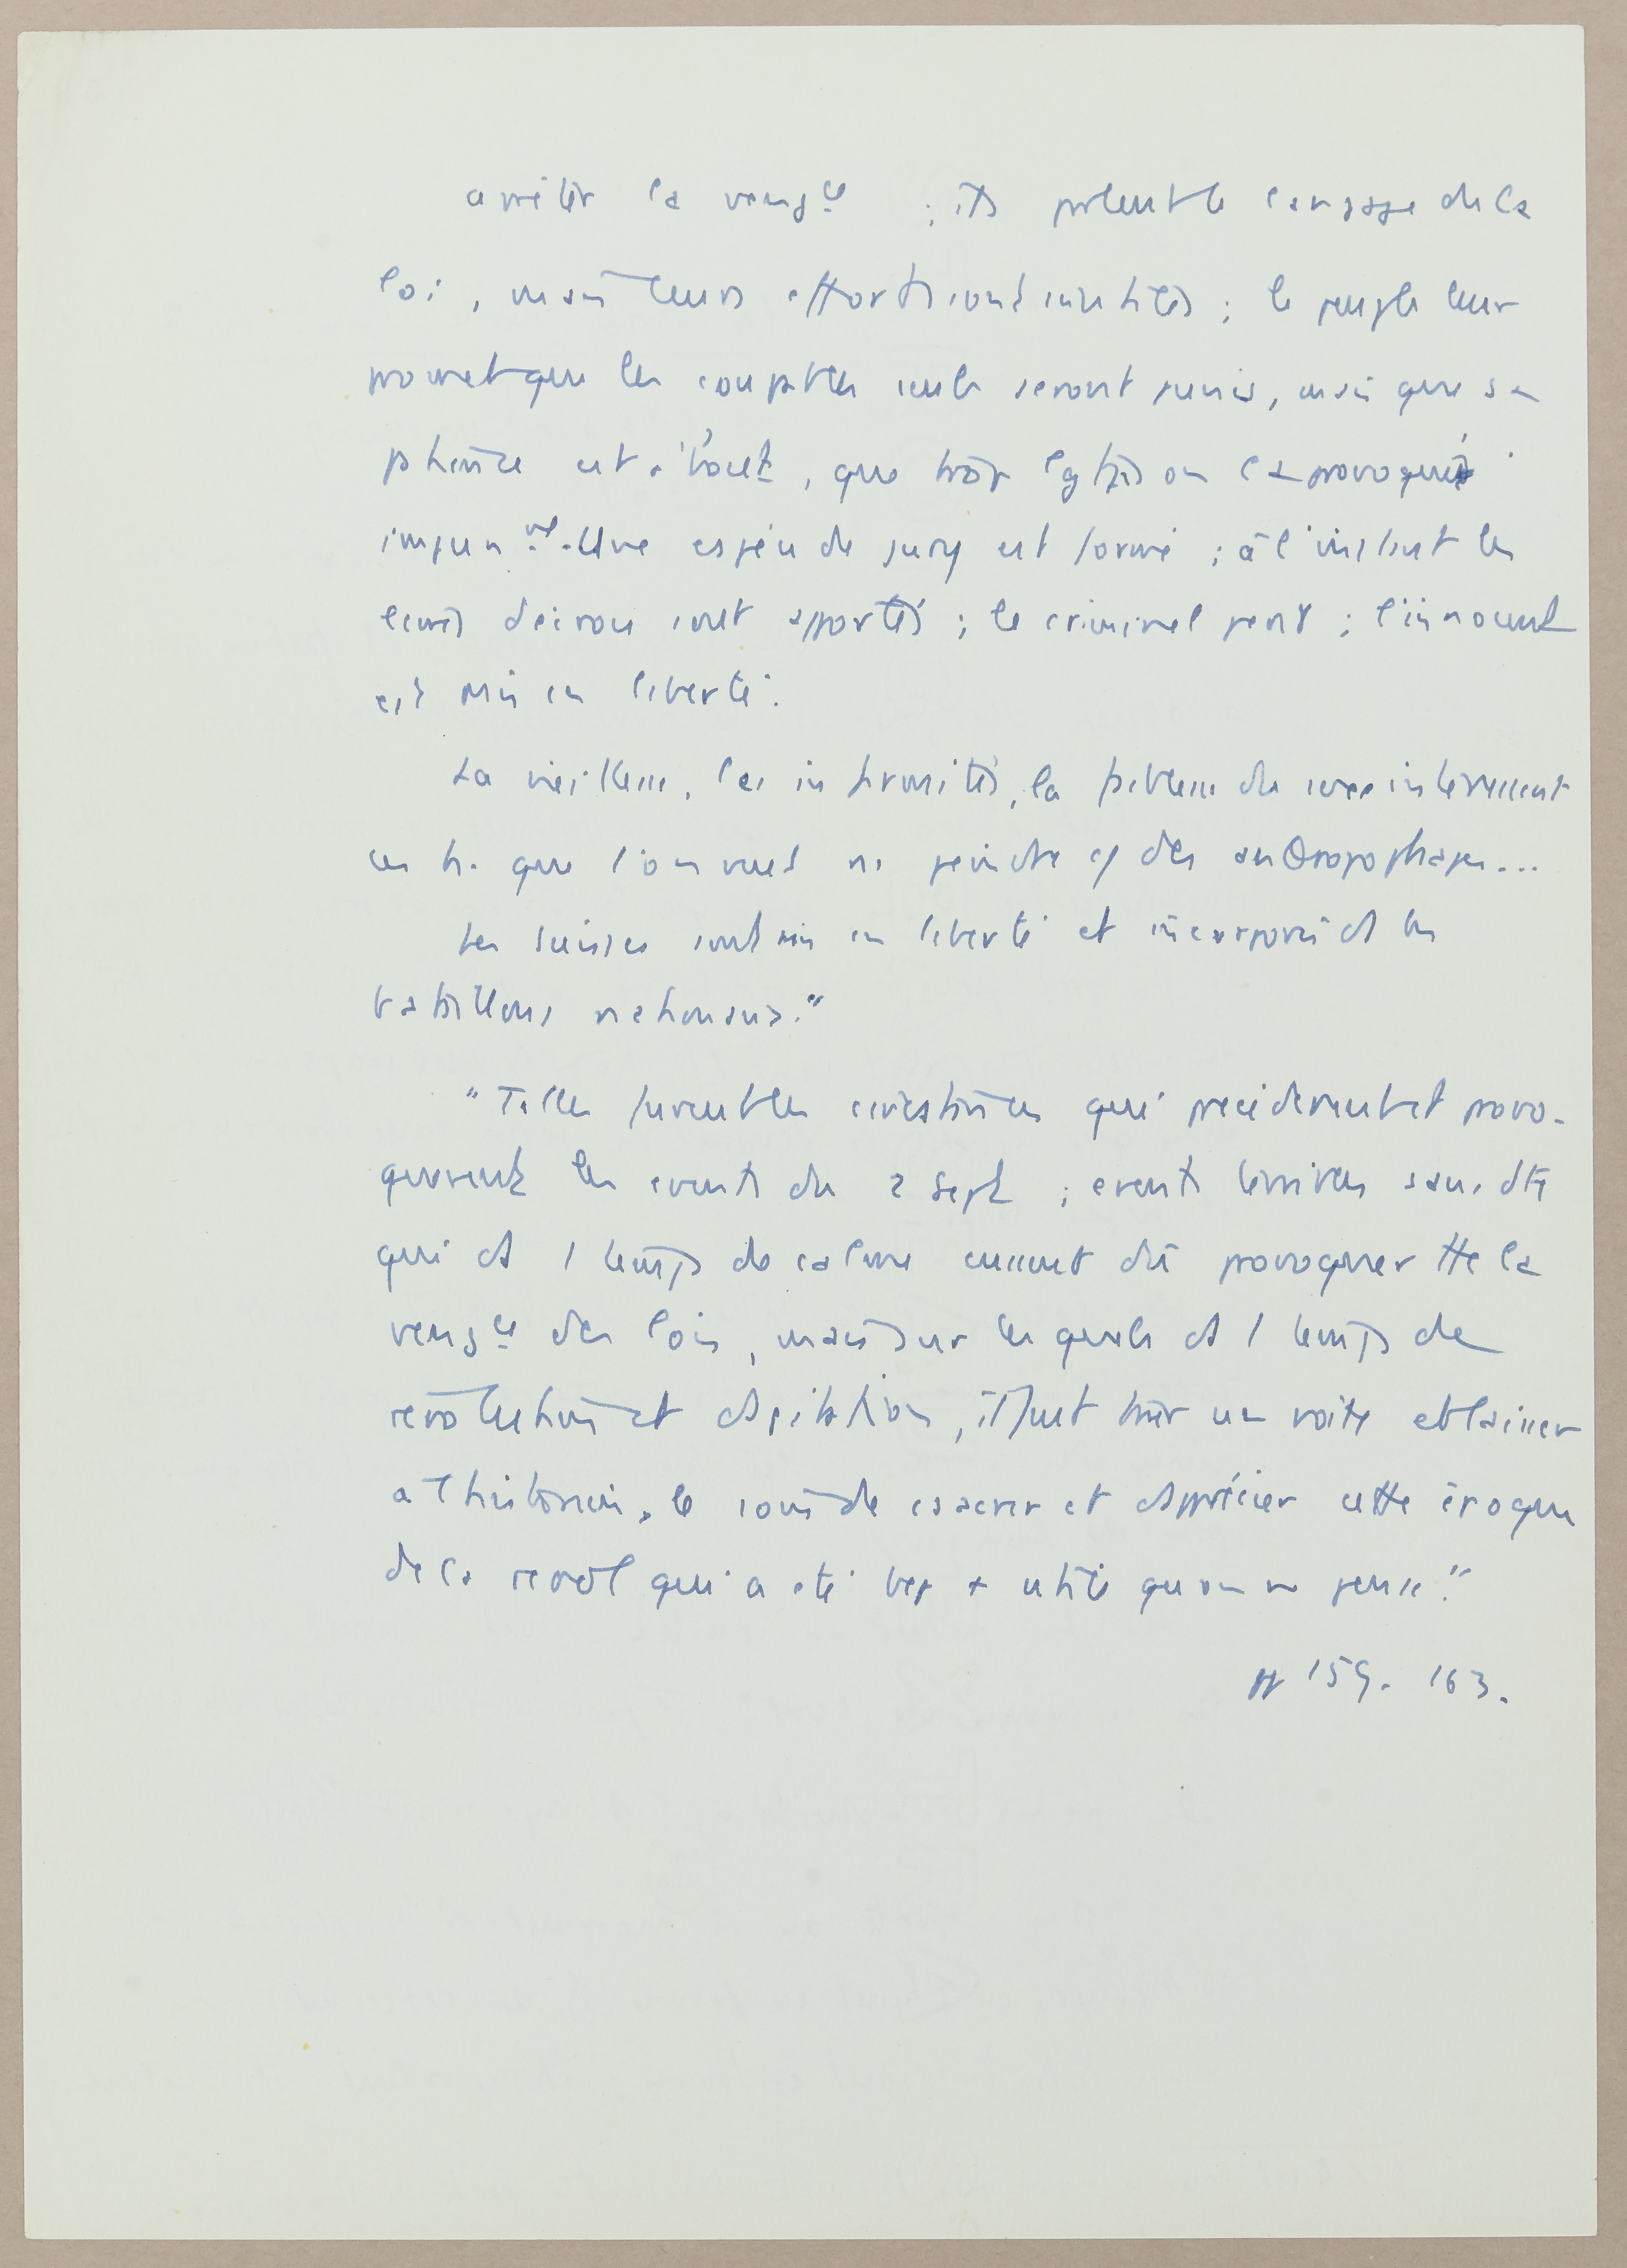 arrêter la veng^ce ; ils parlent le langage de la
loi, mais leurs efforts sont inutiles ; le peuple leur
promet que les coupables seuls seront punis, mais que sa
patience est à bout, que trop lgtps on l'a provoqué
impun^mt. Une espèce de jury est formé ; à l'instant les
livres d'écrou sont apportés ; le criminel périt ; l'innocent
est mis en liberté.
La vieillesse, les infirmités, la faiblesse du sexe intéressent
ces h. que l'on veut ns peindre c/ des anthropophages...
Les suisses sont mis en liberté et incorporés ds les
bataillons nationaux."
"Telles furent les circstances qui précédèrent et provo-
quèrent les évents du 2 sept ; évents terribles sans dte
qui ds 1 temps de calme eussent dû provoquer tte la
veng^ce des lois, mais sur lesquels ds 1 temps de
révolution et d'agitation, il faut tirer un voile et laisser
à l'historien, le soin de consacrer et d'apprécier cette époque
de la révol qui a été bcp + utile qu'on ne pense."
pp 159. 163.